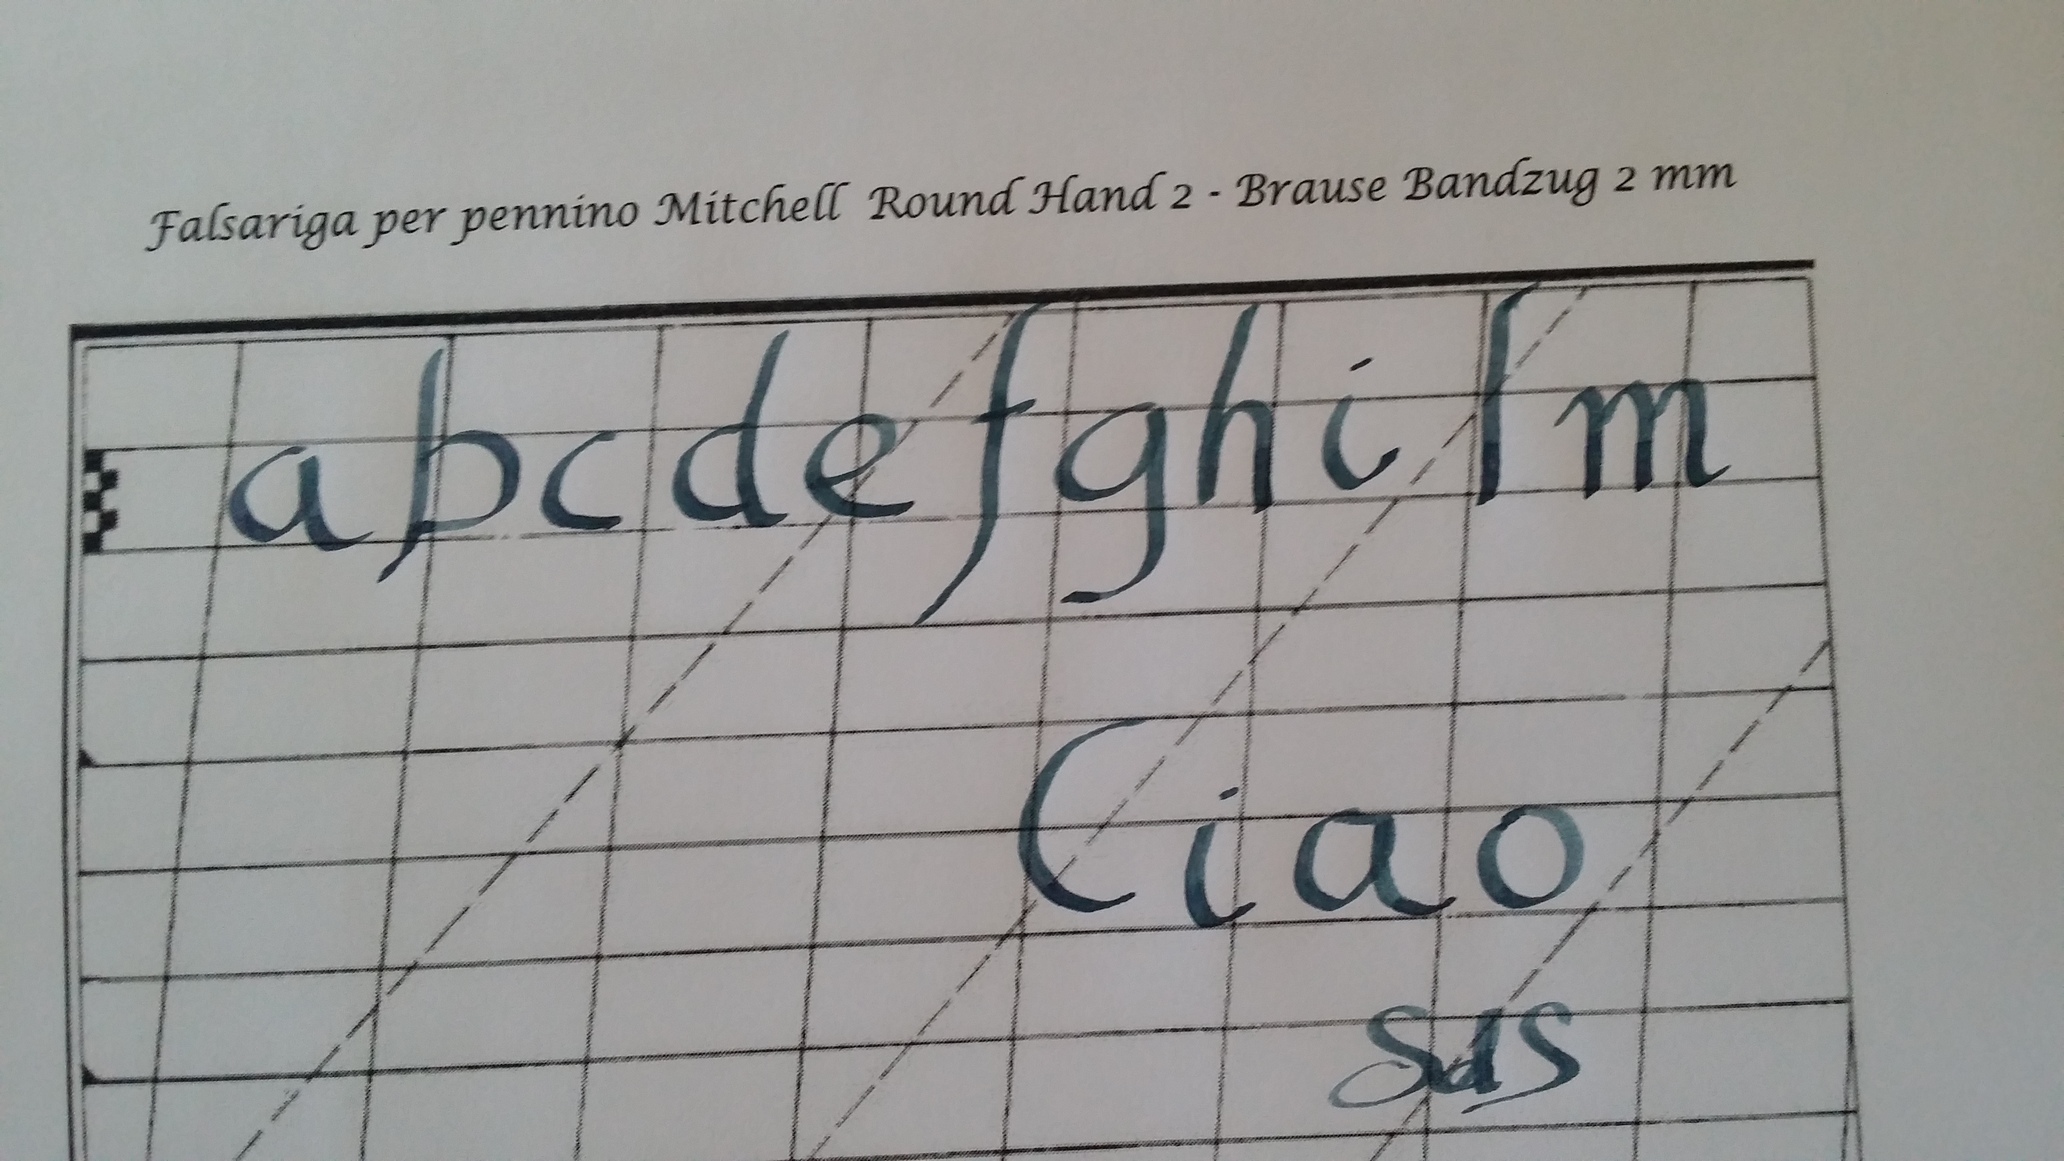 Falsariga per pennino Mitchell Round Hand 2 - Brause Bandzug 2 mm
abcdefghilm
Ciao
sds